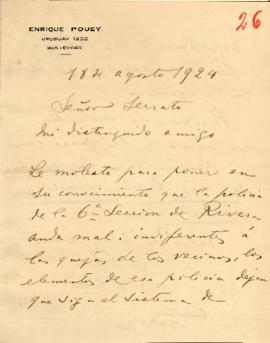 26
ENRIQUE POUEY
URUGUAY 1233
MONTEVIDEO
18 de agosto 1924
Señor Serrato
Mi distinguido amigo
Le molesto para poner en
su conocimiento que la policia
de la 6ª Seccion de Rivera
anda mal; indiferentes á
las quejas de los vecinos, los
elementos de esa policia dejan
que siga el sistema de